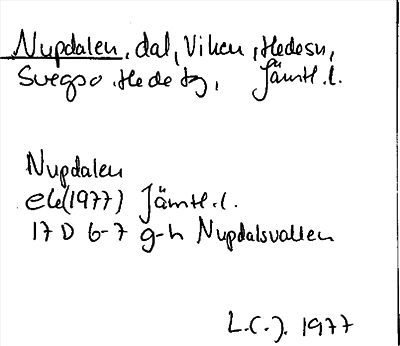 Nupdalen, dal, Viken, Hedesn,
Svegso. Hede tg, Jämtl. l.
Nupdalen
ek(1977) Jämtl. l.
17 D 6-7 g-h Nupdalsvallen
L.C.J. 1977